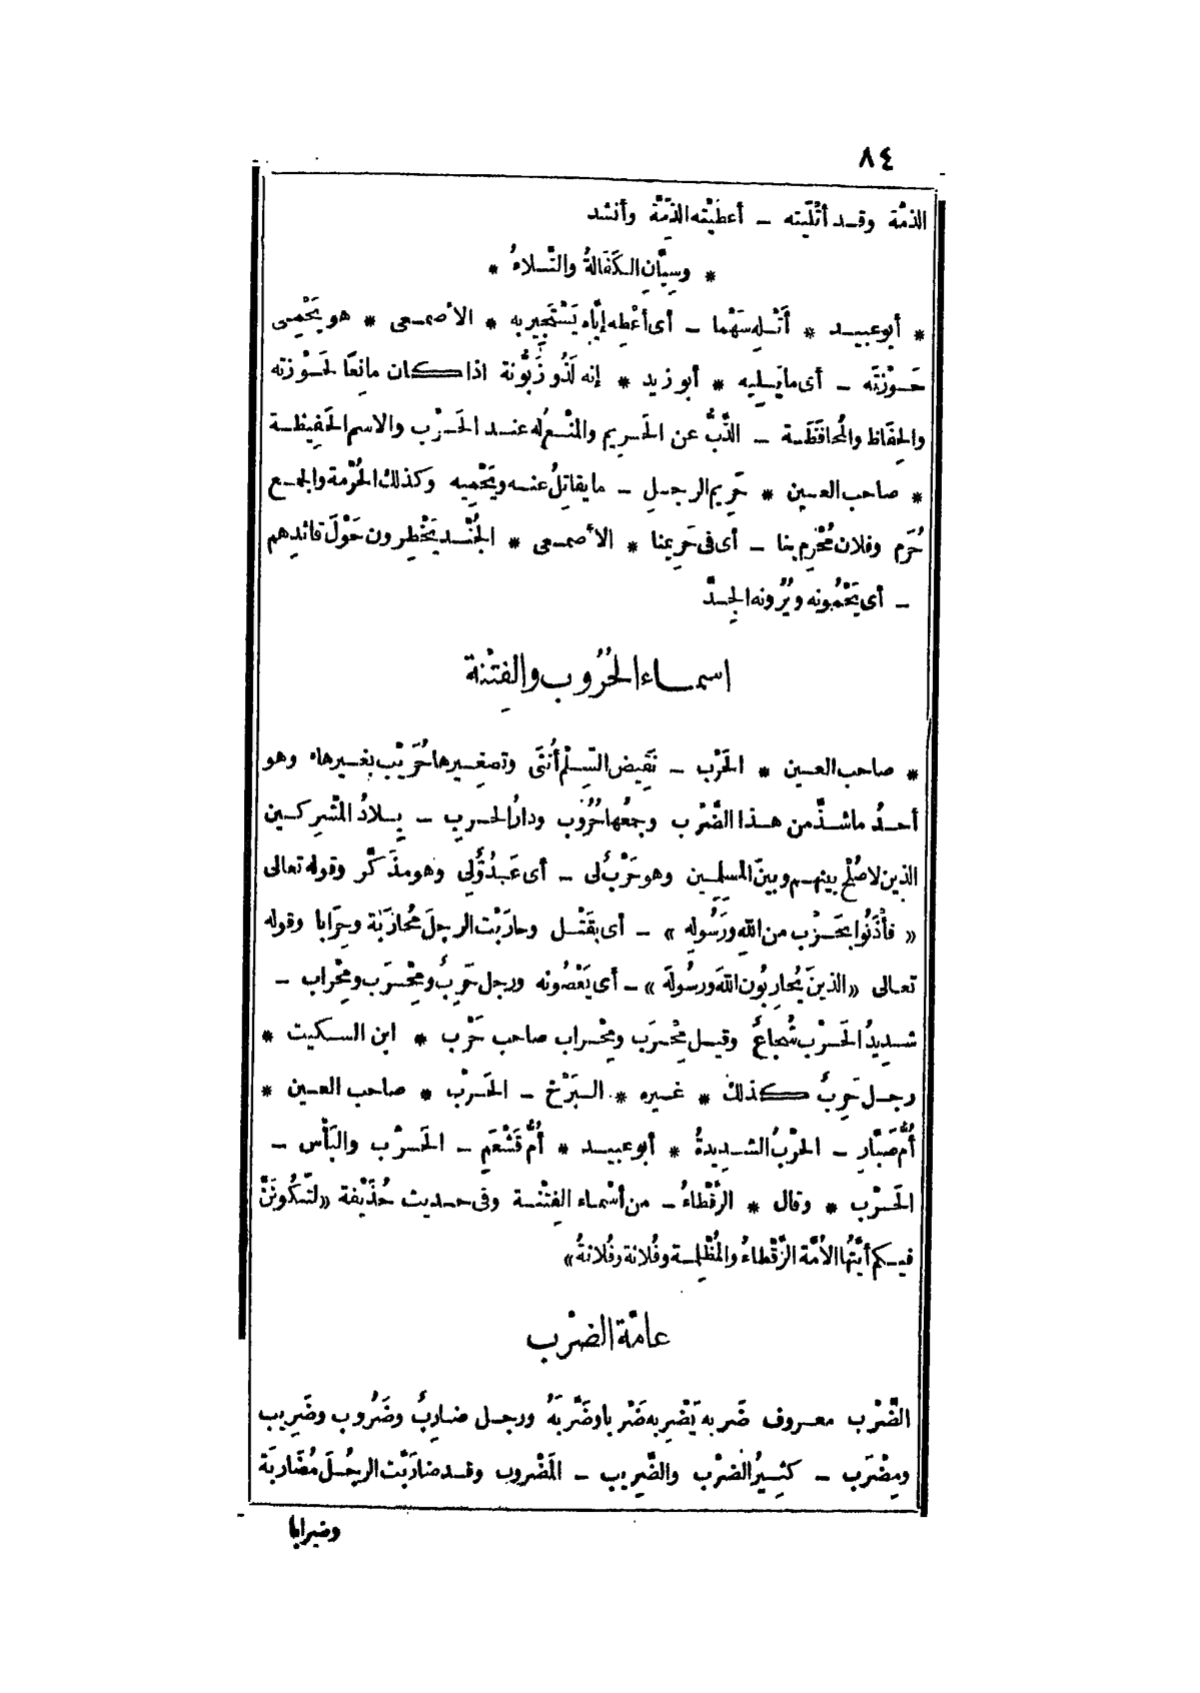 ٨٤
الذمَّة وقد أَتْلَيته ـ أعطَيْته الذِّمَّة وأنشد
* وسِيَّانِ الكَفَالةُ والتَّلاءُ *
* أبوعبيد * أَتْلِه سَهْما ـ أى أعْطِه إيَّاه يَسْتَجِيربه * الأصمعى * هو يَحْمِى
حَوْزَتَه ـ أى مايَلِيه * أبو زيد * إنه لَذُو زَبُّونة اذا كان مانِعًا لحَوْزته
والحِفَاظ والمُحافَظَة ـ الذَّبُّ عن الحَريم والمَنْعُ له عند الحَرْب والاسم الحَفِيظة
* صاحب العين * حَرِيم الرجل ـ مايقاتِلُ عنه ويَحْمِيه وكذلك الحُرْمة والجمع
حُرَم وفلان مُحْرِم بنا ـ أى فى حَرِيمنا * الأصمعى * الجُنْد يَخْطِرون حَوْلَ قائدِهم
ـ أى يَحْمُونه ويُرُونه الجِدَّ
اسماء الحُرُوب والفِتْنة
* صاحب العين * الحَرْب ـ نَقِيض السِّلْم أُنثَى وتصغيرها حُرَيْب بغيرهاء وهو
أحدُ ماشذَّ من هذا الضَّرْب وجمعُها حُرُوب ودارُ الحرب ـ بِلادُ المُشرِكين
الذين لاصُلْح بينهم وبينَ المسلِمِين وهو حَرْبٌ لِى ـ أى عَدُوٌّ لِى وهو مذَكَّر وقوله تعالى
«فأْذَنُوا بحَرْب من اللهِ ورَسُولِهِ» ـ أى بقَتْل وحارَبْت الرجلَ مُحارَبة وحِرَابا وقوله
تعالى «الذينَ يُحارِبُون اللهَ ورسُولَه» ـ أى يَعْصُونه ورجل حَرِبٌ ومِحْرَب ومِحْراب ـ
شديدُ الحَرْب شُجاعٌ وقيل مِحْرَب ومِحْراب صاحب حَرْب * ابن السكيت *
رجل حَرِبٌ كذلك * غيره * البَرْخ ـ الحَرْب * صاحب العين *
أُمُّ صَبَّارٍ ـ الحرْبُ الشديدةُ * أبوعبيد * أُمُّ قَشْعَمٍ ـ الحَرْب والبَأْس ـ
الحَرْب * وقال * الرَّقْطاءُ ـ من أسْماء الفِتْنة وفى حديث حُذَيْفة «لتَكُونَنَّ
فيكم أيَّتُها الأُمَّة الرَّقْطاءُ والمُظْلِمة وفُلانة وفُلانةُ»
عامّة الضرْب
الضَّرْب معروف ضَربه يَضْرِبه ضَرْبا وضَرَّبَهُ ورجل ضارِبٌ وضَرُوب وضَرِيب
ومِضْرَب ـ كثيرُ الضرْب والضَّرِيب ـ المَضْروب وقد ضارَبْت الرجُلَ مُضَاربَة
وضرابا